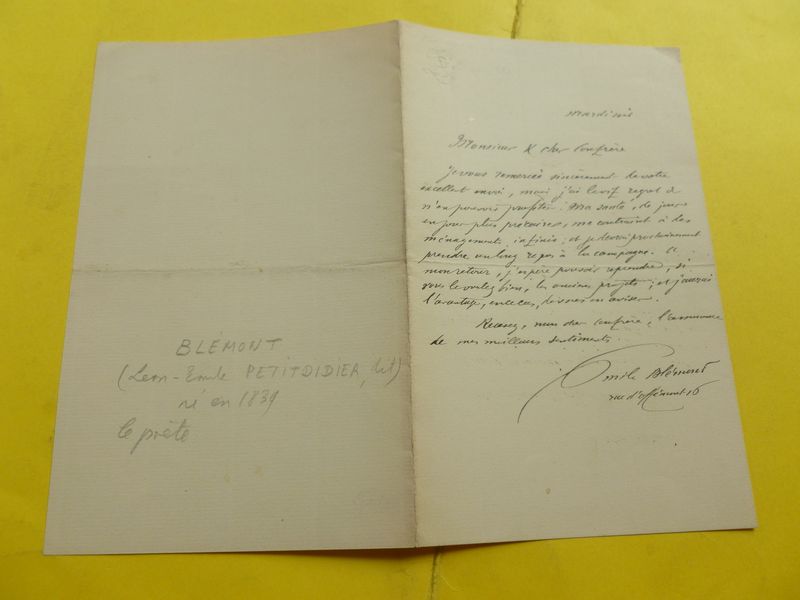 BLÉMONT
(Léon-Emile PETITDIDIER, dit)
né en 1839
le poète
mardi
Monsieur & cher Confrère
Je vous remercie sincèrement de votre
excellent envoi, mais j'ai le vif regret de
n'en pouvoir profiter. Ma santé, de jour
en jour plus précaire, me contraint à des
ménagements infinis; et je devrai prochainement
prendre un long repos à la campagne. A
mon retour, j'espère pouvoir reprendre, si
vous le voulez bien, les anciens projets; et j'aurai
l'avantage, en ce cas, de vous en aviser.
Recevez, mon cher Confrère, l'assurance
de mes meilleurs sentiments.
Emile Blémont
rue d'Offémont 16